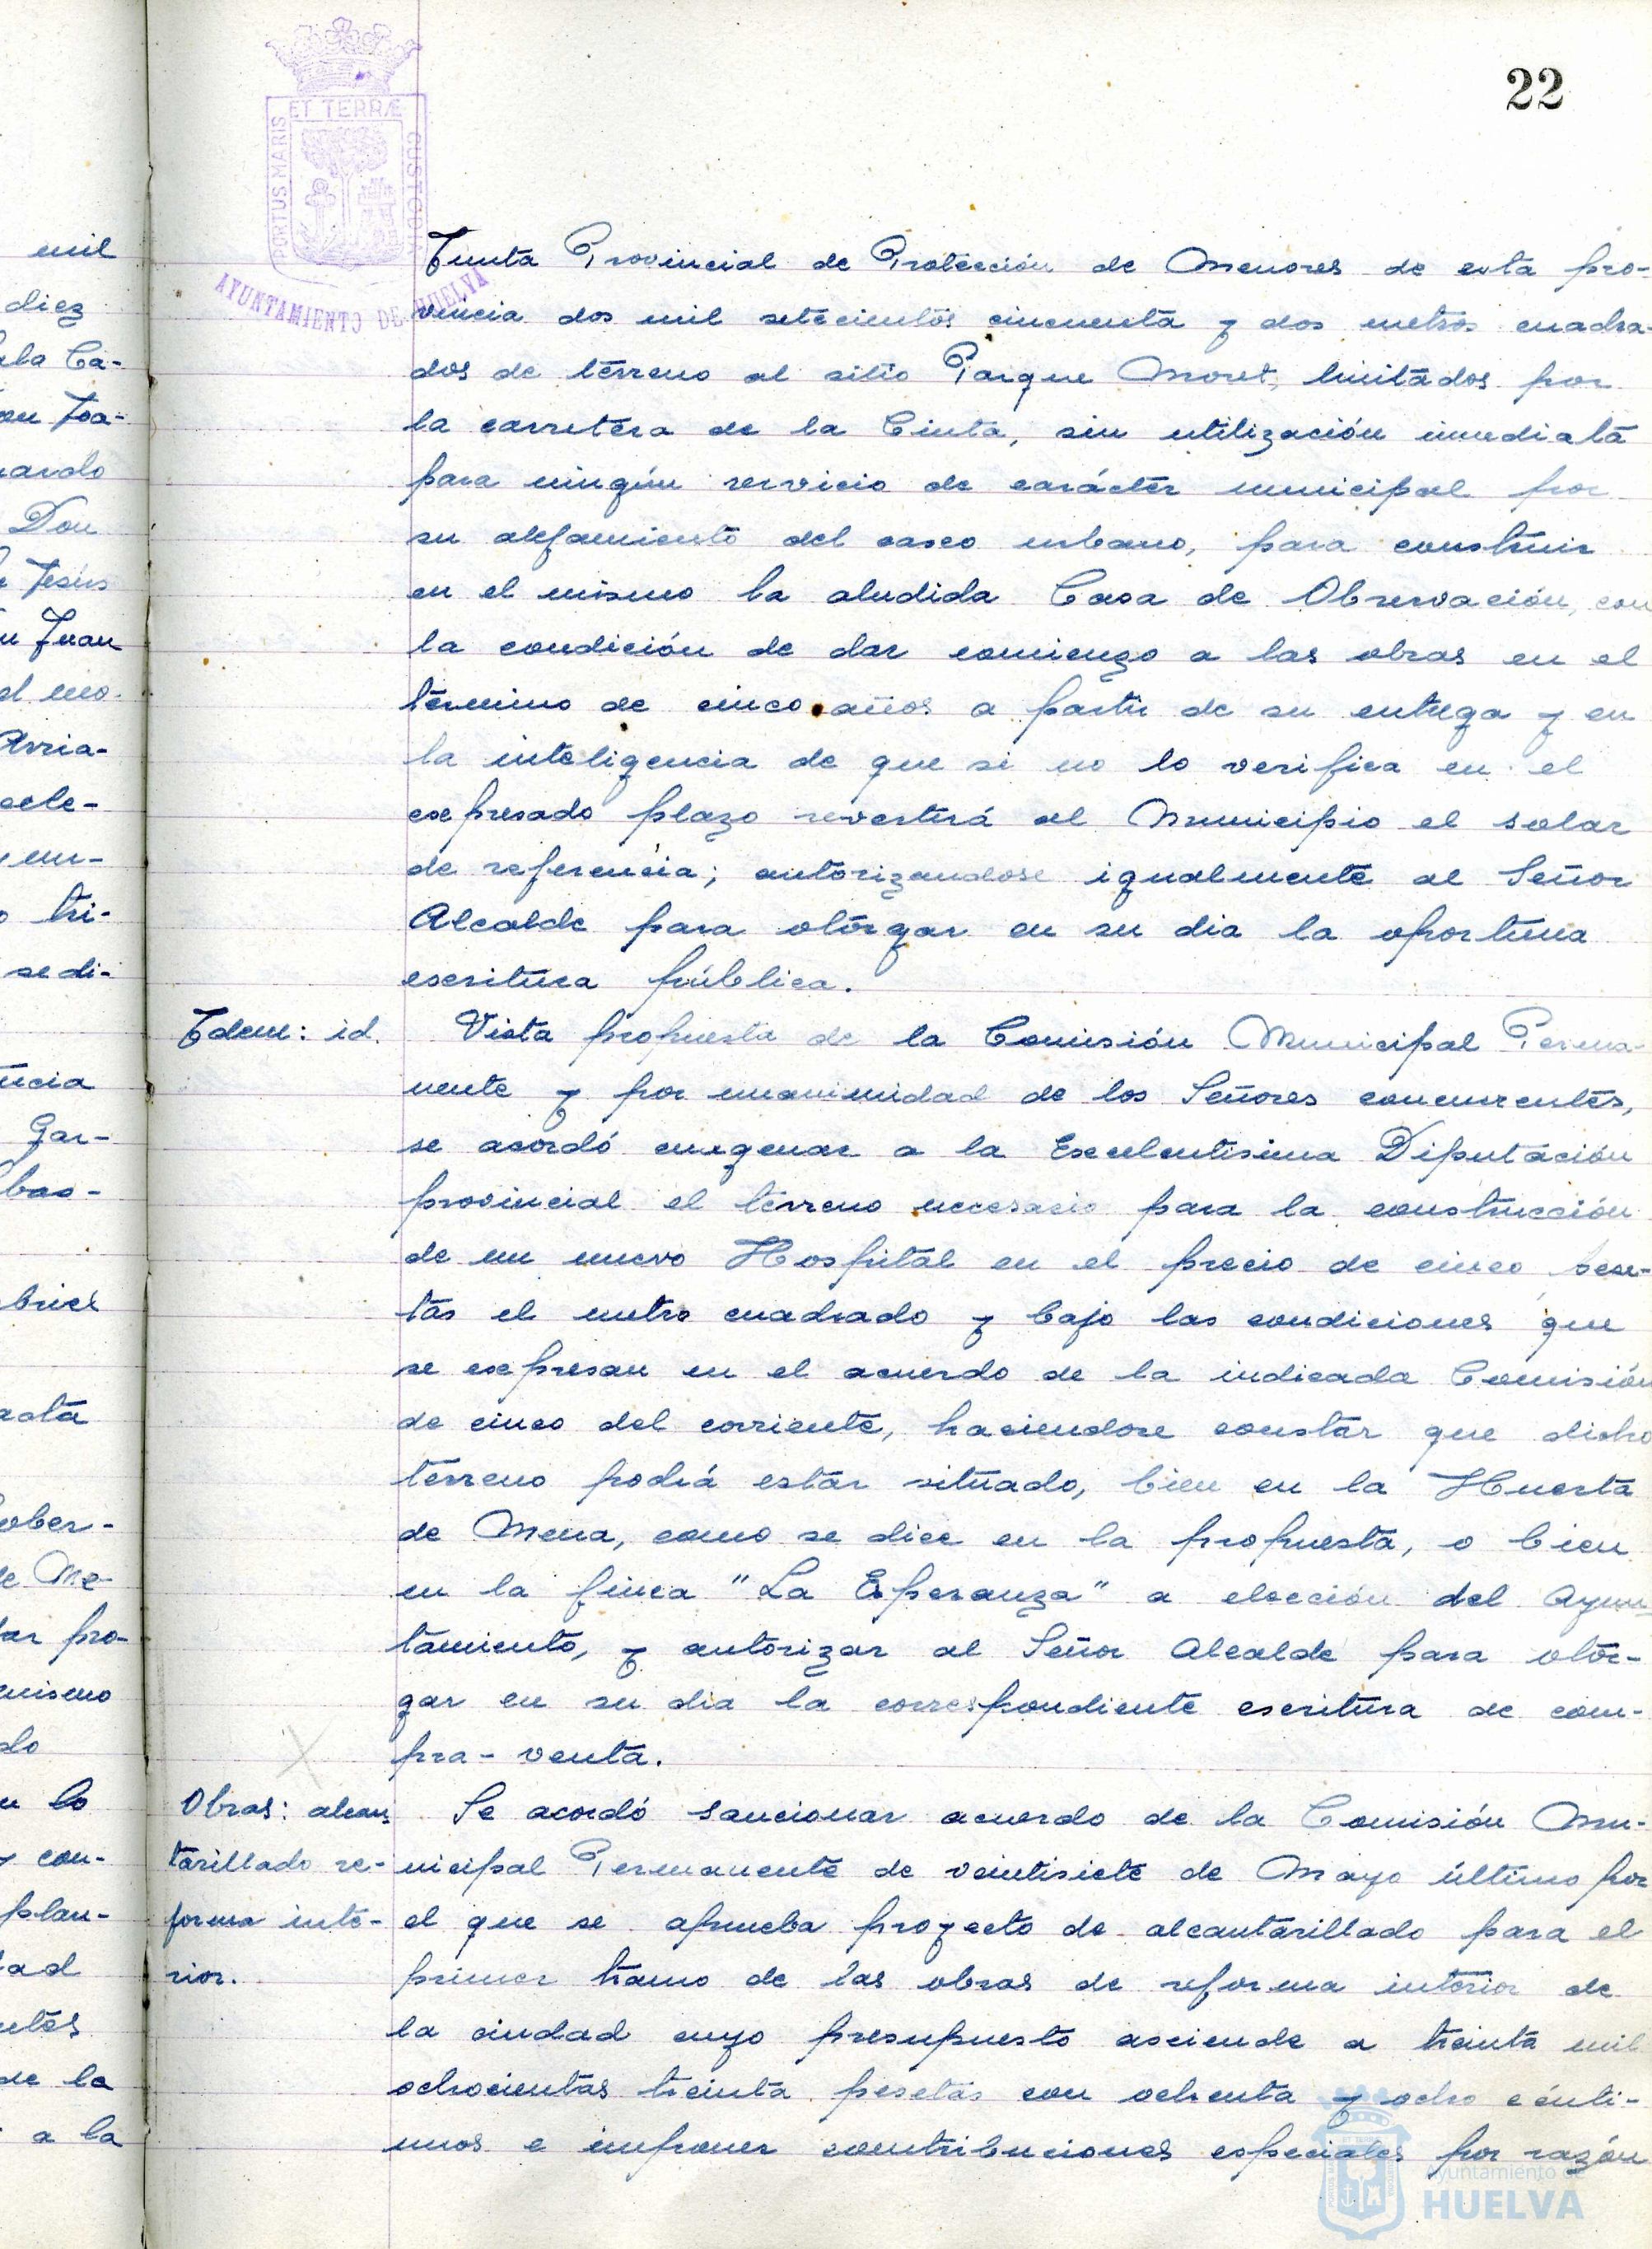 22
PORTUS MARIS ET TERRÆ CUSTODIA
AYUNTAMIENTO DE HUELVA
mil
diez
Ca-
Joa-
Don
Jesús
Juan
el mo-
Arria-
cele-
tri-
se di-
Gar-
briel
acta
ober-
de Me-
pro-
mismo
do
lo
y con-
plan-
de la
a la
Junta Provincial de Protección de Menores de esta pro-
vincia dos mil setecientos cincuenta y dos metros cuadra-
dos de terreno al sitio Parque Moret, limitados por
la carretera de la Cinta, sin utilización inmediata
para ningún servicio de carácter municipal por
su alejamiento del casco urbano, para construir
en el mismo la aludida Casa de Observación, con
la condición de dar comienzo a las obras en el
término de cinco años a partir de su entrega y en
la inteligencia de que si no lo verifica en el
expresado plazo revertirá al Municipio el solar
de referencia; autorizandose igualmente al Señor
Alcalde para otorgar en su dia la oportuna
escritura pública.
Idem: id.
Vista propuesta de la Comisión Municipal Perma-
nente y por unanimidad de los Señores concurrentes,
se acordó enagenar a la Excelentisima Diputación
provincial el terreno necesario para la construcción
de un nuevo Hospital en el precio de cinco pese-
tas el metro cuadrado y bajo las condiciones que
se expresan en el acuerdo de la indicada Comisión
de cinco del corriente, haciendose constar que dicho
terreno podrá estar situado, bien en la Huerta
de Mena, como se dice en la propuesta, o bien
en la finca "La Esperanza" a elección del Ayun-
tamiento, y autorizar al Señor Alcalde para otor-
gar en su dia la correspondiente escritura de com-
pra-venta.
Obras: alcan-
tarillado re-
forma inte-
rior.
Se acordó sancionar acuerdo de la Comisión Mu-
nicipal Permanente de veintisiete de Mayo último por
el que se aprueba proyecto de alcantarillado para el
primer tramo de las obras de reforma interior de
la ciudad cuyo presupuesto asciende a treinta mil
ochocientas treinta pesetas con ochenta y ocho cénti-
mos e imponer contribuciones especiales por razón
Ayuntamiento de
HUELVA